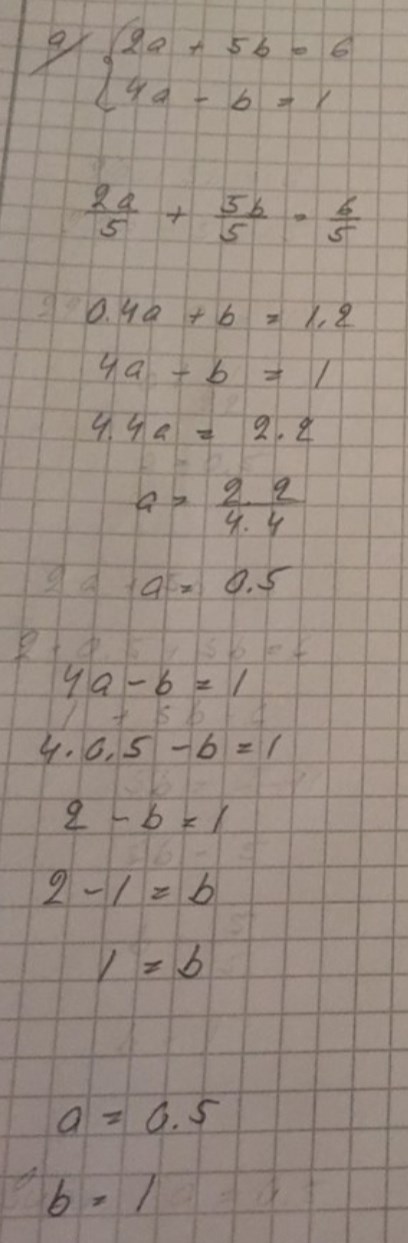 a) { 2a + 5b = 6
4a - b = 1
2a/5 + 5b/5 = 6/5
0.4a + b = 1.2
4a - b = 1
4.4a = 2.2
a = 2.2/4.4
a = 0.5
4a - b = 1
4 · 0.5 - b = 1
2 - b = 1
2 - 1 = b
1 = b
a = 0.5
b = 1